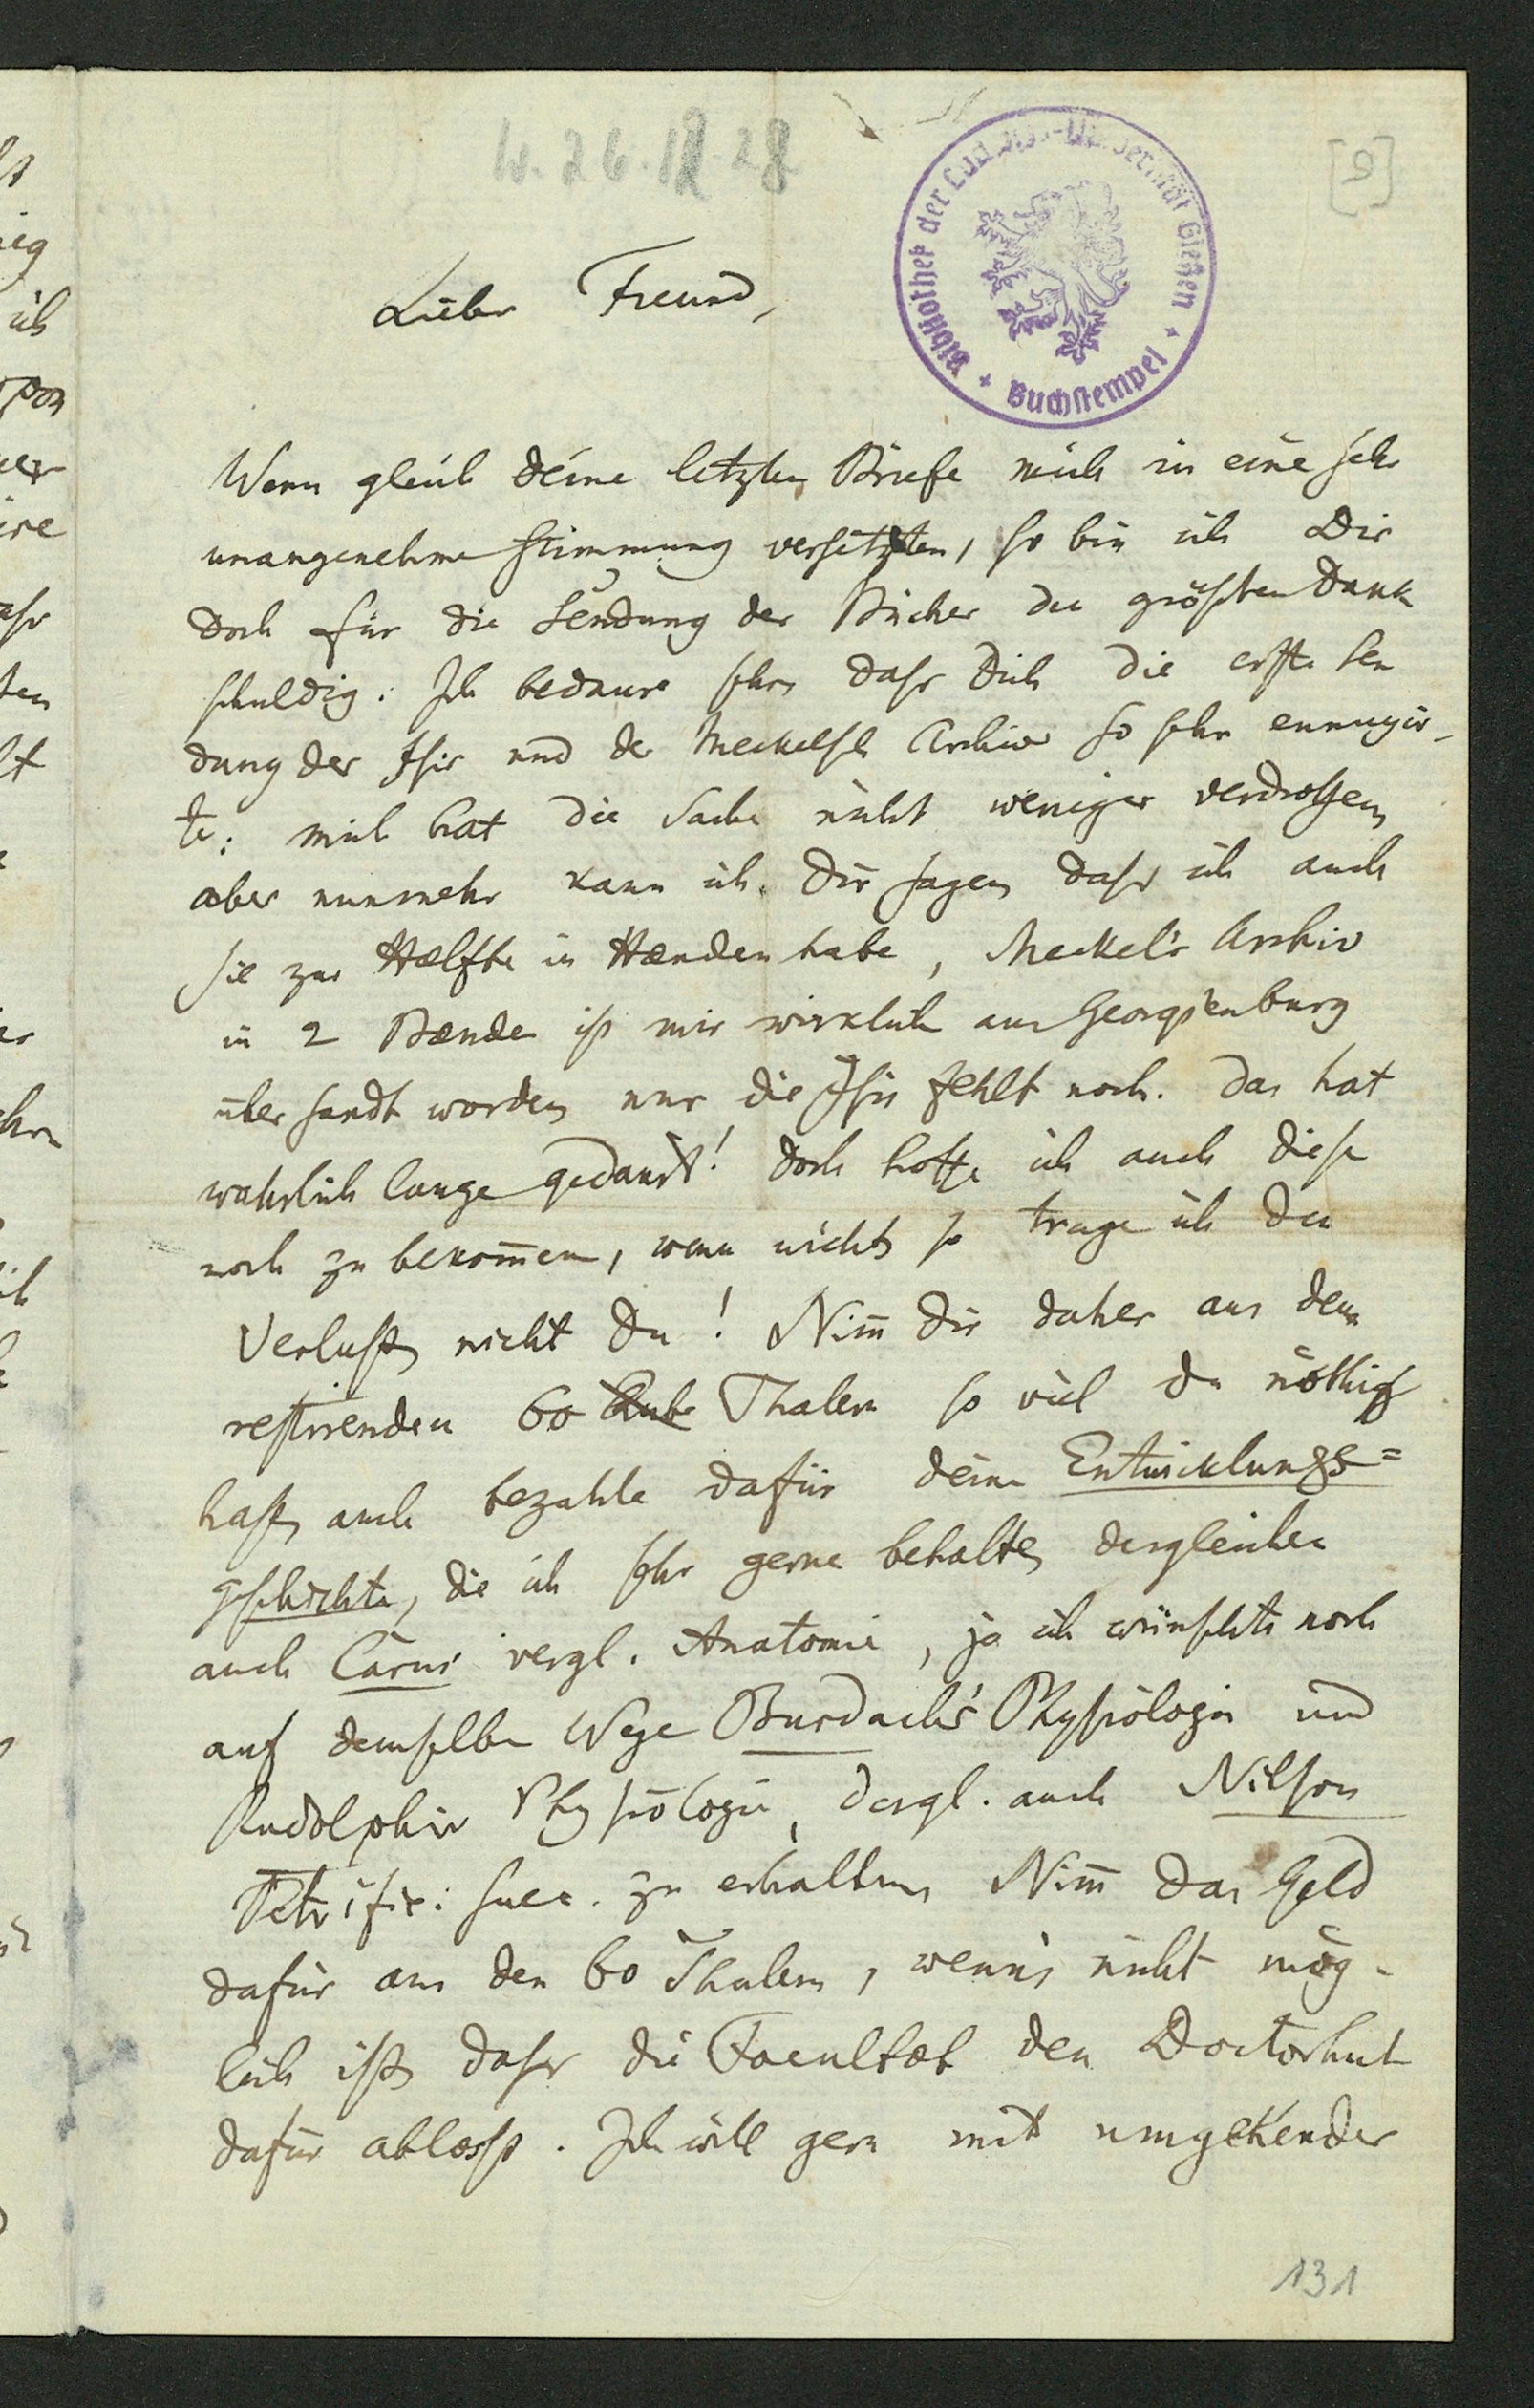 W. 26.12.28
[9]
Bibliothek der Ludwigs-Universität Gießen
+ Buchstempel +
Lieber Freund,
Wenn gleich deine letzten Briefe mich in eine sehr
unangenehme Stimmung versetzten, so bin ich Dir
doch für die Sendung der Bücher den größten Dank
schuldig. Ich bedaure sehr, dass Dich die erste Sen
dung der Isis und des Meckelsch Archivs so sehr ennuyir-
te; mich hat die Sache nicht weniger verdrossen,
aber nunmehr kann ich Dir sagen, dass ich auch
sie zur Hælfte in Hænden habe, Meckel's Archiv
in 2 Bænden ist mir wirklich aus Georgienburg
übersandt worden, nur die Isis fehlt noch. Das hat
wahrlich lange gedaurt! Doch hoffe ich auch diese
noch zu bekom̄en, wenn nicht, so trage ich den
Verlust, nicht Du! Nim̄ dir daher aus den
restirenden 60 Thalern so viel du nöthig
hast, auch bezahle dafür deine Entwicklungs=
geschichte, die ich sehr gerne behalte, desgleichen
auch Carus vergl. Anatomie, ja ich wünschte noch
auf demselben Wege Burdach's Physiologie und
Rudolphis Physiologie, desgl. auch Nilson
Petrific. suec. zu erhalten, Nim̄ das Geld
dafür aus den 60 Thalern, wenn's nicht mög-
lich ist, dass die Facultæt den Doctorhut
dafür ablæsst. Ich will gern mit umgehender
131